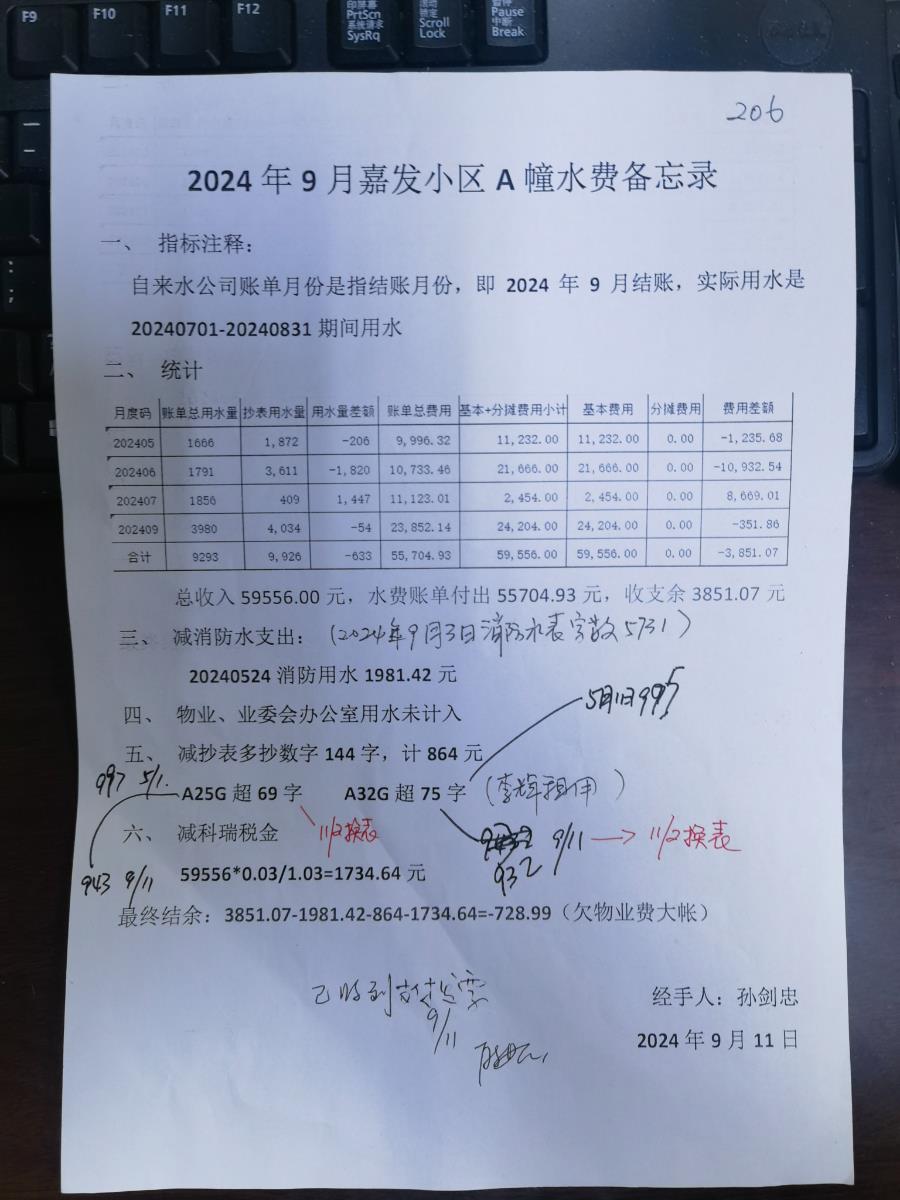 F9 F10 F11 F12 印屏幕 PrtScn 系统请求 SysRq Scroll Lock Pause 中断 Break
206
2024 年 9 月嘉发小区 A 幢水费备忘录
一、 指标注释：
自来水公司账单月份是指结账月份，即 2024 年 9 月结账，实际用水是
20240701-20240831 期间用水
二、 统计
月度码 账单总用水量 抄表用水量 用水量差额 账单总费用 基本+分摊费用小计 基本费用 分摊费用 费用差额
202405 1666 1,872 -206 9,996.32 11,232.00 11,232.00 0.00 -1,235.68
202406 1791 3,611 -1,820 10,733.46 21,666.00 21,666.00 0.00 -10,932.54
202407 1856 409 1,447 11,123.01 2,454.00 2,454.00 0.00 8,669.01
202409 3980 4,034 -54 23,852.14 24,204.00 24,204.00 0.00 -351.86
合计 9293 9,926 -633 55,704.93 59,556.00 59,556.00 0.00 -3,851.07
总收入 59556.00 元，水费账单付出 55704.93 元，收支余 3851.07 元
三、 减消防水支出：（2024年9月3日消防水表字数5731）
20240524 消防用水 1981.42 元
5月1日997
四、 物业、业委会办公室用水未计入
五、 减抄表多抄数字 144 字，计 864 元
997 5/1.
A25G 超 69 字 A32G 超 75 字（李辉租用）
六、 减科瑞税金 11/2换表 9/11 → 11/2换表
932
943 9/11
59556*0.03/1.03=1734.64 元
最终结余：3851.07-1981.42-864-1734.64=-728.99（欠物业费大帐）
已收到
9/11
经手人：孙剑忠
2024 年 9 月 11 日